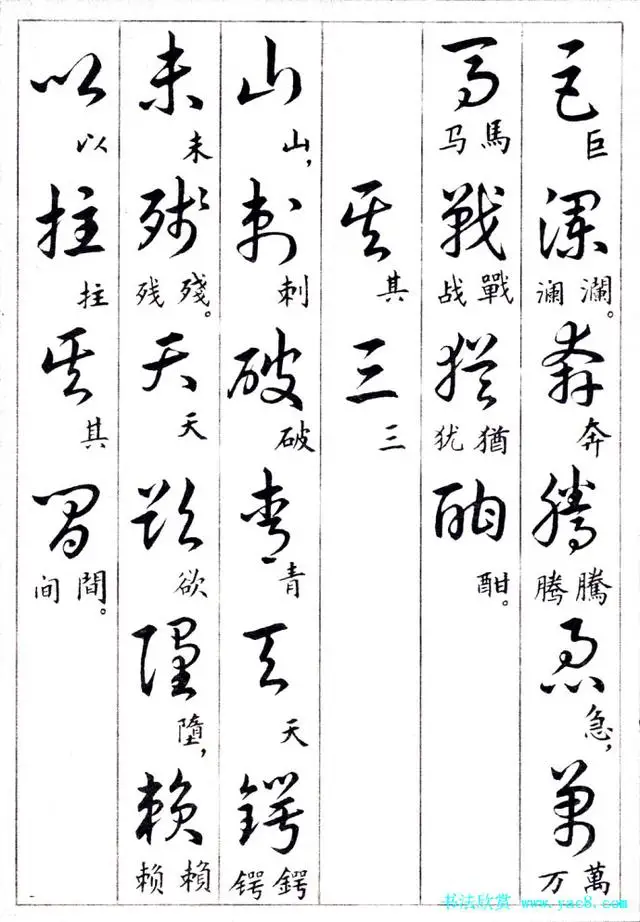 巨瀾奔騰急萬
巨瀾。澜奔騰腾急，萬万
馬戰猶酣
馬马戰战猶犹酣。
其三
其三
山刺破青天鍔
山，刺破青天鍔锷
未殘天欲墮賴
未殘。残天欲墮，賴赖
以拄其間
以拄其間。间
书法欣赏 www.yac8.com